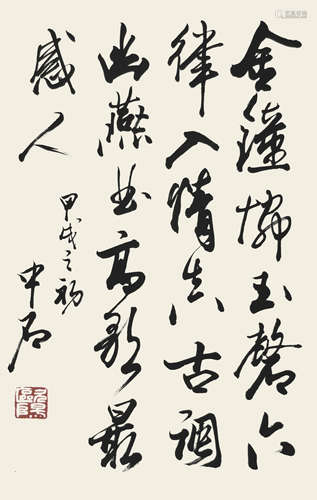 金鐘玉磬六
律入情真古調
幽燕曲高歌最
感人
甲戌之初
中石